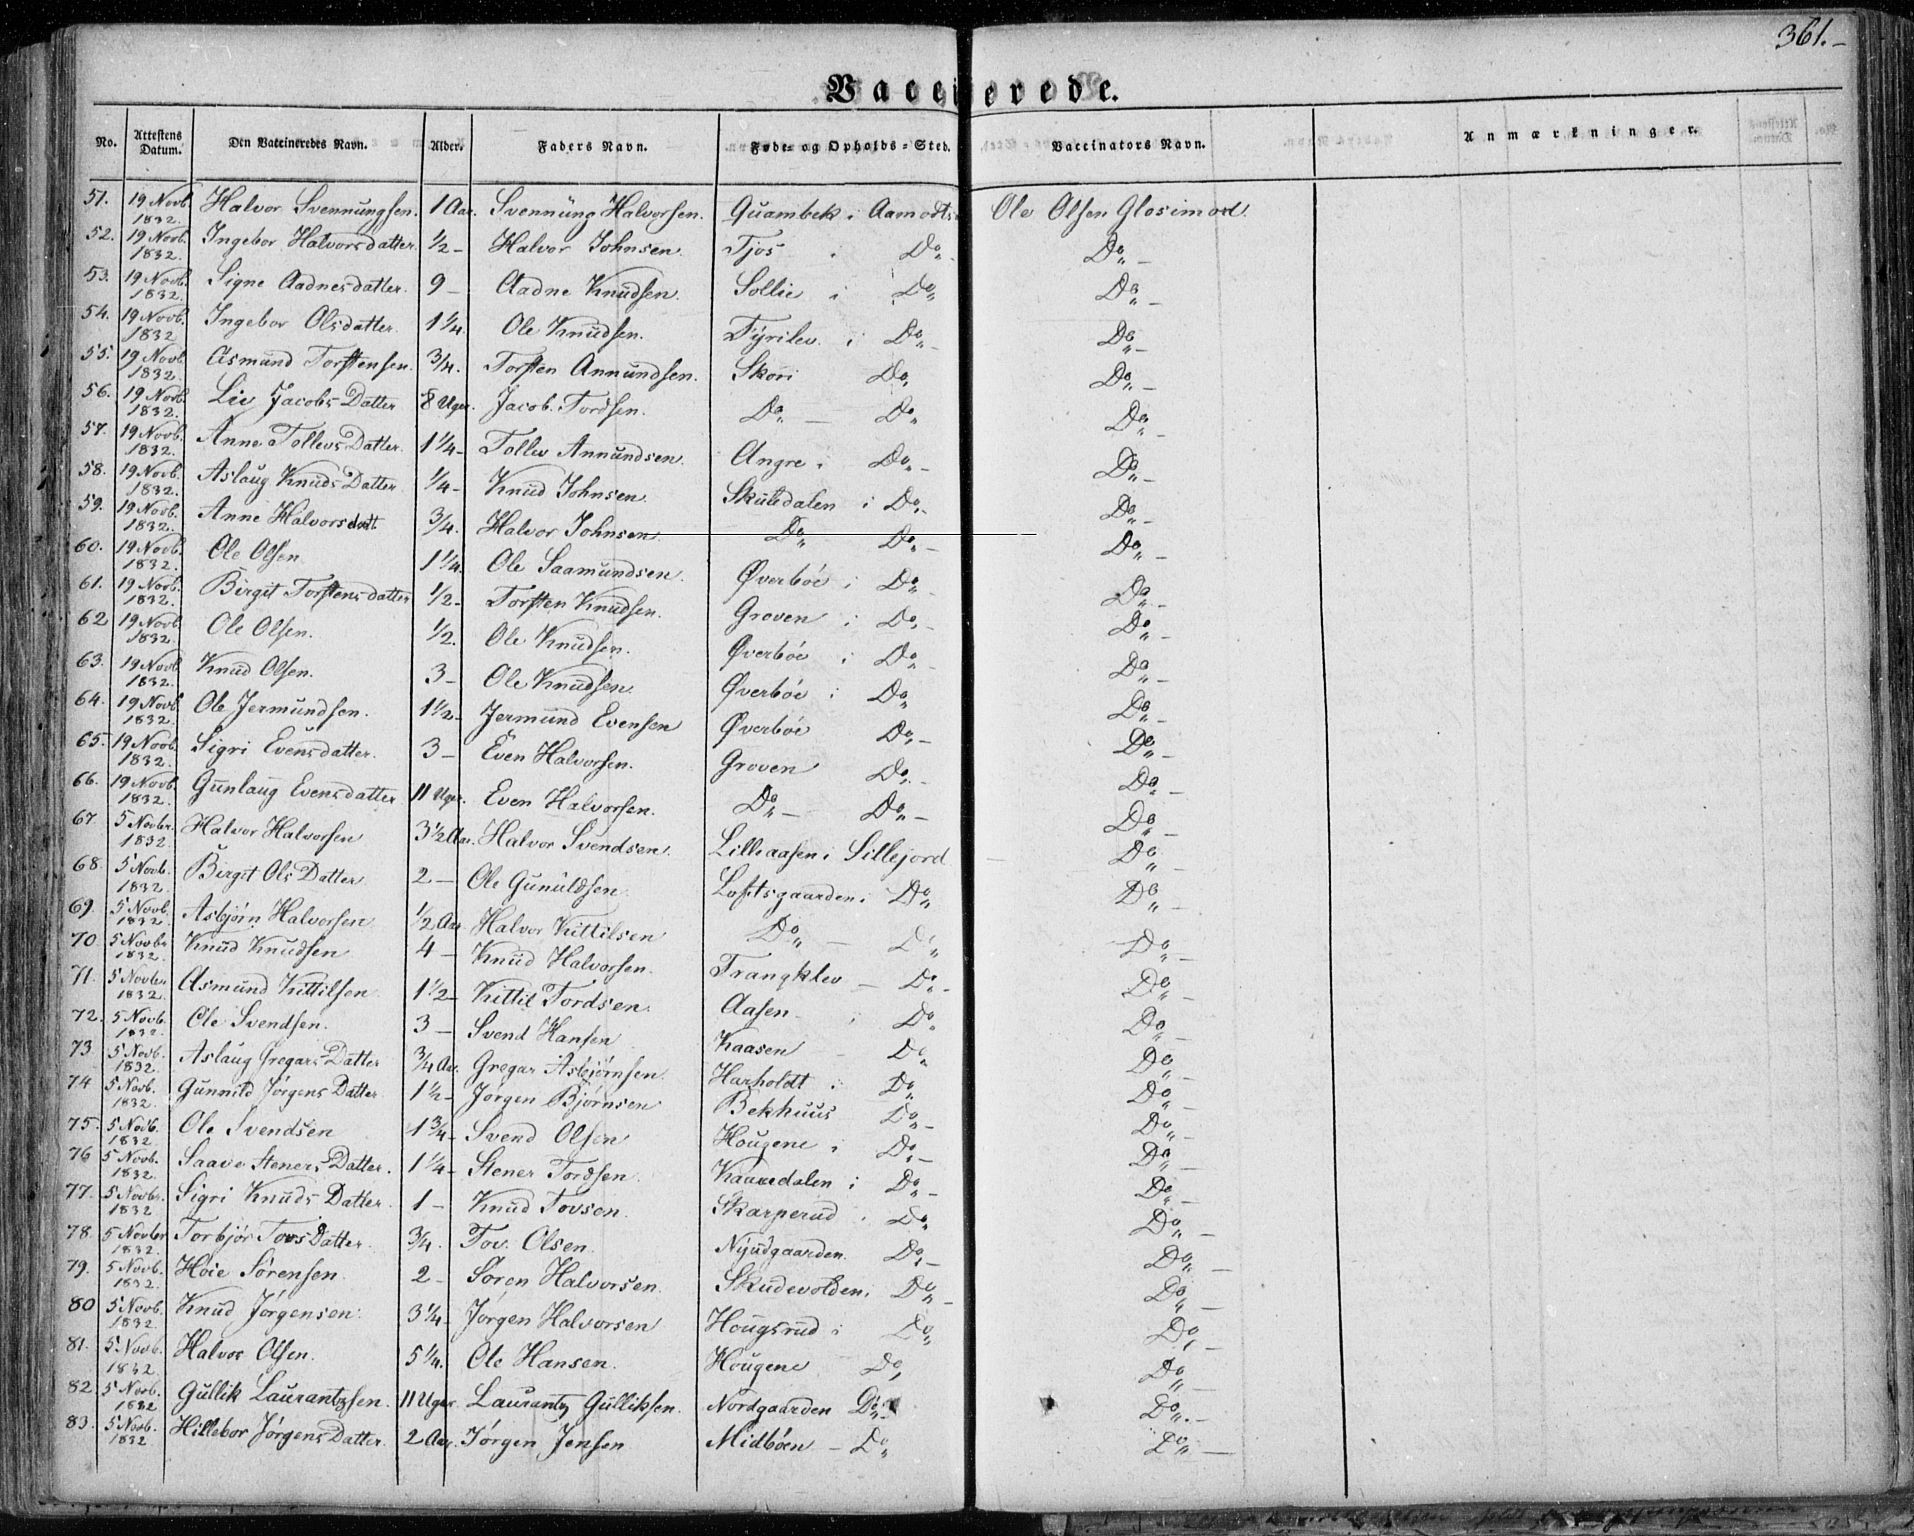 361.-
Vaccinerede.
No. Attestens Datum. Den Vaccineredes Navn. Alder. Faders Navn. Føde- og Opholds-Sted. Vaccinators Navn. Anmærkninger.
51. 19 Novb. 1832. Halvor Svennungsen. 1 Aar. Svennüng Halvorsen. Quambek i Aamodts Ole Olsen Glosimod.
52. 19 Novb. 1832. Ingebor Halvorsdatter. 1/2 - Halvor Johnsen. Tjos Do Do -
53. 19 Novb. 1832. Signe Aadnesdatter. 9 - Aadne Knüdsen. Sollie i Do Do -
54. 19 Novb. 1832 Ingebor Olsdatter. 1 1/4. Ole Knüdsen. Tyrilev. i Do - Do -
55. 19 Novb. 1832. Asmund Torstensen. 3/4. Torsten Annundsen. Skori Do Do -
56. 19 Novb. 1832. Liv Jacobs Datter 8 Uger. Jacob. Tordsen. Do - Do Do -
57. 19 Novb. 1832. Anne Tollevs Datter. 1 1/4 - Tollev Annundsen. Angre i Do - Do -
58. 19 Novb. 1832. Aslaug Knüds Datter 1/4 - Knüd Johnsen Skuledalen i Do - Do -
59. 19 Novb. 1832. Anne Halvorsdatt 3/4. Halvor Johnsen Do Do - Do -
60. 19 Novb. 1832. Ole Olsen 1 1/4. Ole Saamundsen. Øverbøe i Do - Do -
61. 19 Novb. 1832. Birgit Torstensdatter 1/2 - Torsten Knüdsen. Groven i Do - Do -
62 19 Novb 1832. Ole Olsen. 1/2. Ole Knüdsen. Øverbøe i Do - Do -
63. 19 Novb 1832. Knüd Olsen. 3 - Ole Knüdsen. Øverbøe i Do Do -
64. 19 Novb. 1832. Ole Jermundsen. 1 1/2 - Jermund Evensen Øverbøe Do - Do -
65. 19 Novb. 1832. Sigri Evensdatter. 3 - Even Halvorsen. Groven Do - Do -
66. 19 Novb. 1832. Gunlaug Evensdatter 11 Uger. Even Halvorsen. Do - Do - Do -
67 5 Novbr. 1832. Halvor Halvorsen 3 1/2 Aar. Halvor Svendsen. Lilleaasen i Sillejord Do
68. 5 Novb. 1832. Birgit Ols Datter 2 - Ole Gunüldsen Loftsgaarden i Do Do -
69. 5 Novb. 1832. Asbjørn Halvorsen 1/2 Aar Halvor Kittilsen Do - Do Do -
70. 5 Novbr 1832. Knüd Knüdsen 4 - Knüd Halvorsen. Trangklev - Do - Do -
71. 5 Novber 1832. Asmund Kittilsen 1 1/2 - Kittil Tordsen Aasen i Do Do -
72. 5 Novb. 1832. Ole Svendsen. 3 - Svend Hansen Kaasen - Do Do -
73 5 Novb. 1832. Aslaug Gregars Datter 3/4 Aar. Gregar Asbjørnsen. Harholdt i Do Do -
74 5 Novb. 1832. Gunnild Jørgens Datter 1 1/2 - Jørgen Bjørnsen Bekhuus Do - Do -
75. 5 Novb. 1832 Ole Svendsen 1 3/4 - Svend Olsen Hougene i Do - Do -
76 5 Novb. 1832. Saave Steners Datter. 1 1/4 - Stener Tordsen i Do - Do -
77. 5 Novbr. 1832 Sigri Knüds Datter 1 - Knüd Tovsen. Skarperud Do Do -
78. 5 Novbr 1832. Torbjør Tovs Datter 3/4. Tov. Olsen. Nyüdgaarden. Do - Do -
79. 5 Novb. 1832. Høie Sørensen 2 - Søren Halvorsen. Skudevolden i Do - Do -
80 5 Novb. 1832. Knüd Jørgensen 3 1/4 - Jørgen Halvorsen Hougsrud i Do Do -
81. 5 Novb. 1832 Halvor Olsen. 5 1/4. Ole Hansen. Hougene Do Do -
82. 5 Novb. 1832 Gullik Laurantzsen. 11 Uger Laurantz Gülliksen. Nordgaarden Do - Do -
83. 5 Novb. 1832 Hillebor Jørgens Datter 2 Aar. Jørgen Jensen Midbøen - Do Do -